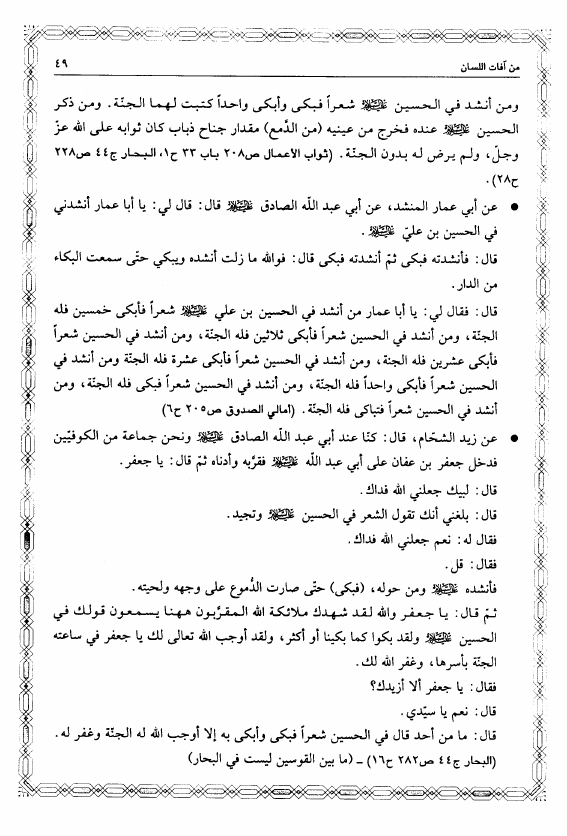 من آفات اللسان
٤٩
ومن أنشد في الحسين عليه السلام شعراً فبكى وأبكى واحداً كتبت لهما الجنّة. ومن ذكر
الحسين عليه السلام عنده فخرج من عينيه (من الدَّمع) مقدار جناح ذباب كان ثوابه على الله عزّ
وجلّ، ولم يرض له بدون الجنّة. (ثواب الأعمال ص٢٠٨ باب ٣٣ ح١، البحار ج٤٤ ص٢٢٨
ح٢٨).
● عن أبي عمار المنشد، عن أبي عبد اللّه الصادق عليه السلام قال: قال لي: يا أبا عمار أنشدني
في الحسين بن عليّ عليه السلام.
قال: فأنشدته فبكى ثمّ أنشدته فبكى قال: فوالله ما زلت أنشده ويبكي حتّى سمعت البكاء
من الدار.
قال: فقال لي: يا أبا عمار من أنشد في الحسين بن علي عليه السلام شعراً فأبكى خمسين فله
الجنّة، ومن أنشد في الحسين شعراً فأبكى ثلاثين فله الجنّة، ومن أنشد في الحسين شعراً
فأبكى عشرين فله الجنة، ومن أنشد في الحسين شعراً فأبكى عشرة فله الجنّة ومن أنشد في
الحسين شعراً فأبكى واحداً فله الجنّة، ومن أنشد في الحسين شعراً فبكى فله الجنّة، ومن
أنشد في الحسين شعراً فتباكى فله الجنّة. (أمالي الصدوق ص٢٠٥ ح٦)
● عن زيد الشحّام، قال: كنّا عند أبي عبد اللّه الصادق عليه السلام ونحن جماعة من الكوفيّين
فدخل جعفر بن عفان على أبي عبد اللّه عليه السلام فقرَّبه وأدناه ثمّ قال: يا جعفر.
قال: لبيك جعلني الله فداك.
قال: بلغني أنك تقول الشعر في الحسين عليه السلام وتجيد.
فقال له: نعم جعلني الله فداك.
فقال: قل.
فأنشده عليه السلام ومن حوله، (فبكى) حتّى صارت الدُّموع على وجهه ولحيته.
ثمّ قال: يا جعفر والله لقد شهدك ملائكة الله المقرَّبون ههنا يسمعون قولك في
الحسين عليه السلام ولقد بكوا كما بكينا أو أكثر، ولقد أوجب الله تعالى لك يا جعفر في ساعته
الجنّة بأسرها، وغفر الله لك.
فقال: يا جعفر ألا أزيدك؟
قال: نعم يا سيّدي.
قال: ما من أحد قال في الحسين شعراً فبكى وأبكى به إلا أوجب الله له الجنّة وغفر له.
(البحار ج٤٤ ص٢٨٢ ح١٦) ـ (ما بين القوسين ليست في البحار)